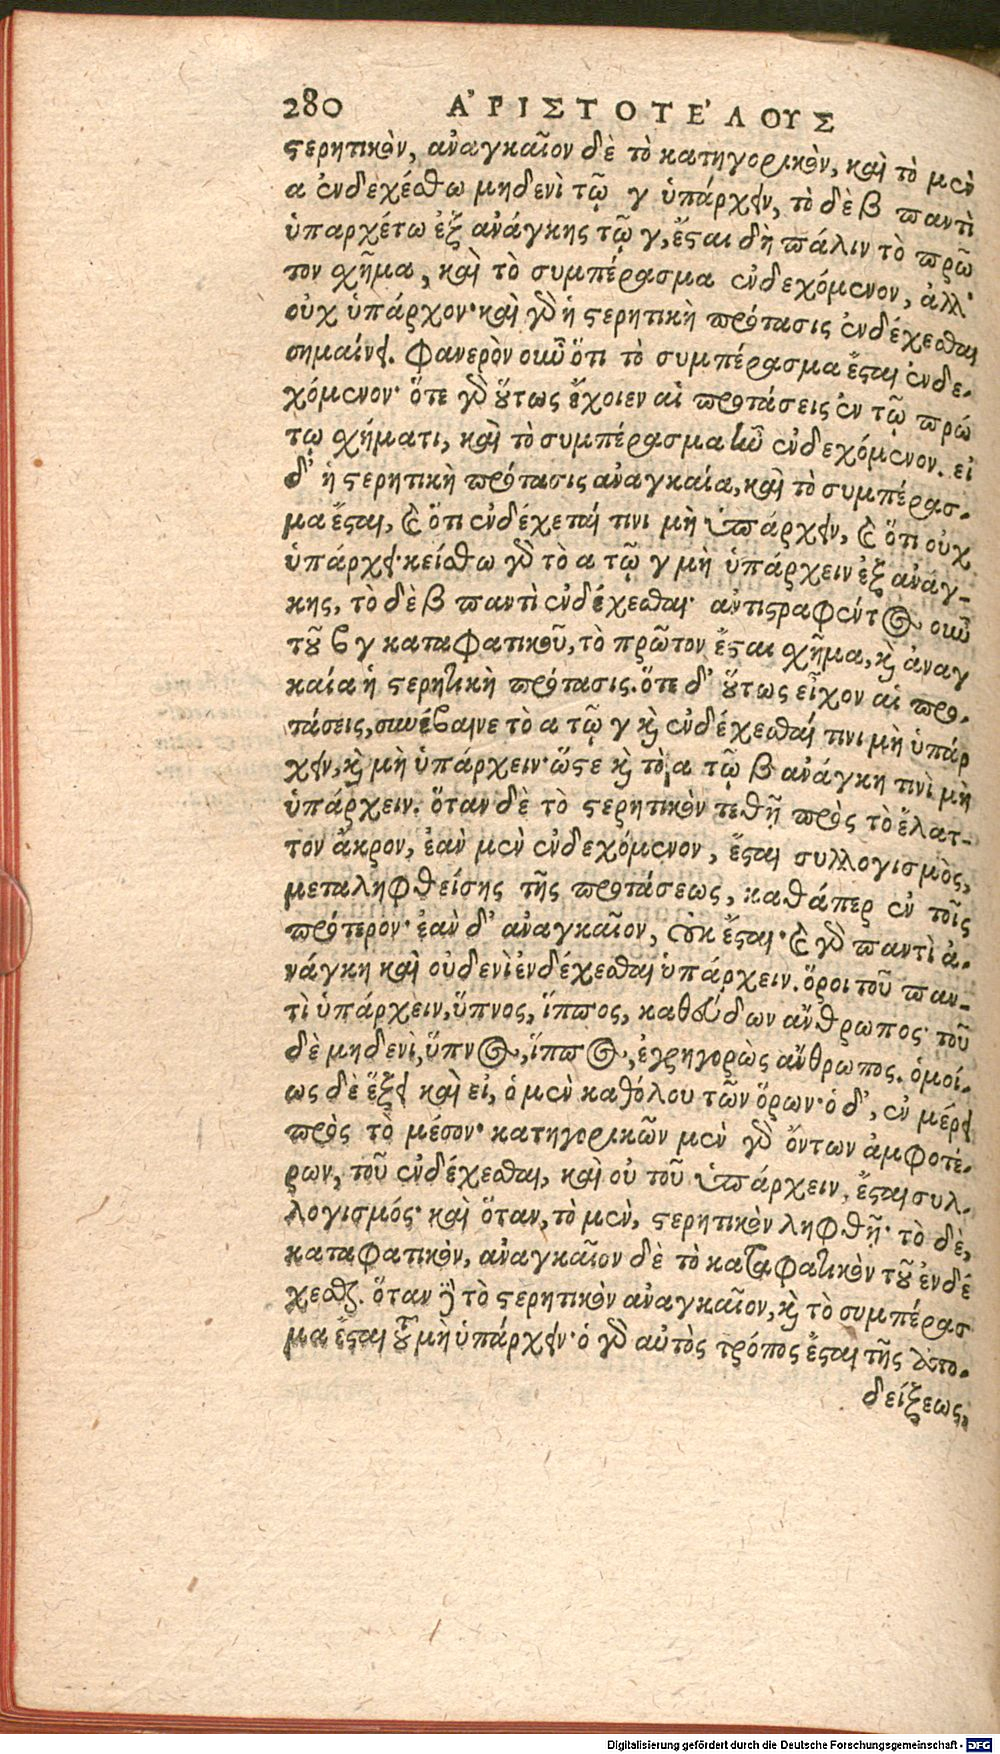 280 ἈΡΙΣΤΟΤΈΛΟΥΣ
στερητικὸν, ἀναγκαῖον δὲ τὸ κατηγορικὸν, καὶ τὸ μὲν
α ἐνδεχέσθω μηδενὶ τῷ γ ὑπάρχειν, τὸ δὲ β παντὶ
ὑπαρχέτω ἐξ ἀνάγκης τῷ γ, ἔσται δὴ πάλιν τὸ πρῶ
τον χῆμα, καὶ τὸ συμπέρασμα ἐνδεχόμενον, ἀλλ'
οὐχ ὑπάρχον· καὶ γὸ ἡ στερητικὴ πρότασις ἐνδέχεσθαι
σημαίνει. Φανερὸν οὖν ὅτι τὸ συμπέρασμα ἔσται ἐνδε-
χόμενον· ὅτε γὸ οὕτως ἔχοιεν αἱ προτάσεις ἐν τῷ πρώ
τῳ χήματι, καὶ τὸ συμπέρασμα ἦν ἐνδεχόμενον. εἰ
δ' ἡ στερητικὴ πρότασις ἀναγκαία, καὶ τὸ συμπέρασ-
μα ἔσται, καὶ ὅτι ἐνδέχεταί τινι μὴ ὑπάρχειν, καὶ ὅτι οὐχ
ὑπάρχει· κείσθω γὸ τὸ α τῷ γ μὴ ὑπάρχειν ἐξ ἀνάγ-
κης, τὸ δὲ β παντὶ ἐνδέχεσθαι· ἀντιστραφέντος οὖν
τοῦ β γ καταφατικοῦ, τὸ πρῶτον ἔσται χῆμα, καὶ ἀναγ
καία ἡ στερητικὴ πρότασις. ὅτε δ' οὕτως εἶχον αἱ προ-
τάσεις, συνέβαινε τὸ α τῷ γ καὶ ἐνδέχεσθαί τινι μὴ ὑπάρ
χειν, καὶ μὴ ὑπάρχειν· ὥστε καὶ τὸ, α τῷ β ἀνάγκη τινὶ μὴ
ὑπάρχειν. ὅταν δὲ τὸ στερητικὸν τεθῇ πρὸς τὸ ἔλατ-
τον ἄκρον, ἐὰν μὲν ἐνδεχόμενον, ἔσται συλλογισμὸς,
μεταληφθείσης τῆς προτάσεως, καθάπερ ἐν τοῖς
πρότερον· ἐὰν δ' ἀναγκαῖον, οὐκ ἔσται· καὶ γὸ παντὶ ἀ-
νάγκη καὶ οὐδενὶ ἐνδέχεσθαι ὑπάρχειν. ὅροι τοῦ παν-
τὶ ὑπάρχειν, ὕπνος, ἵππος, καθεύδων ἄνθρωπος· τοῦ
δὲ μηδενὶ, ὕπνος, ἵππος, ἐγρηγορὼς ἄνθρωπος. ὁμοί-
ως δὲ ἕξει καὶ εἰ, ὁ μὲν καθόλου τῶν ὅρων· ὁ δ', ἐν μέρει
πρὸς τὸ μέσον· κατηγορικῶν μὲν γὸ ὄντων ἀμφοτέ-
ρων, τοῦ ἐνδέχεσθαι, καὶ οὐ τοῦ ὑπάρχειν, ἔσται συλ-
λογισμός· καὶ ὅταν, τὸ μὲν, στερητικὸν ληφθῇ· τὸ δὲ,
καταφατικὸν, ἀναγκαῖον δὲ τὸ καταφατικὸν τοῦ ἐνδέ
χεσθαι. ὅταν δὲ τὸ στερητικὸν ἀναγκαῖον, καὶ τὸ συμπέρασ
μα ἔσται τοῦ μὴ ὑπάρχειν· ὁ γὸ αὐτὸς τρόπος ἔσται τῆς ἀπο-
δείξεως,
Digitalisierung gefördert durch die Deutsche Forschungsgemeinschaft - DFG